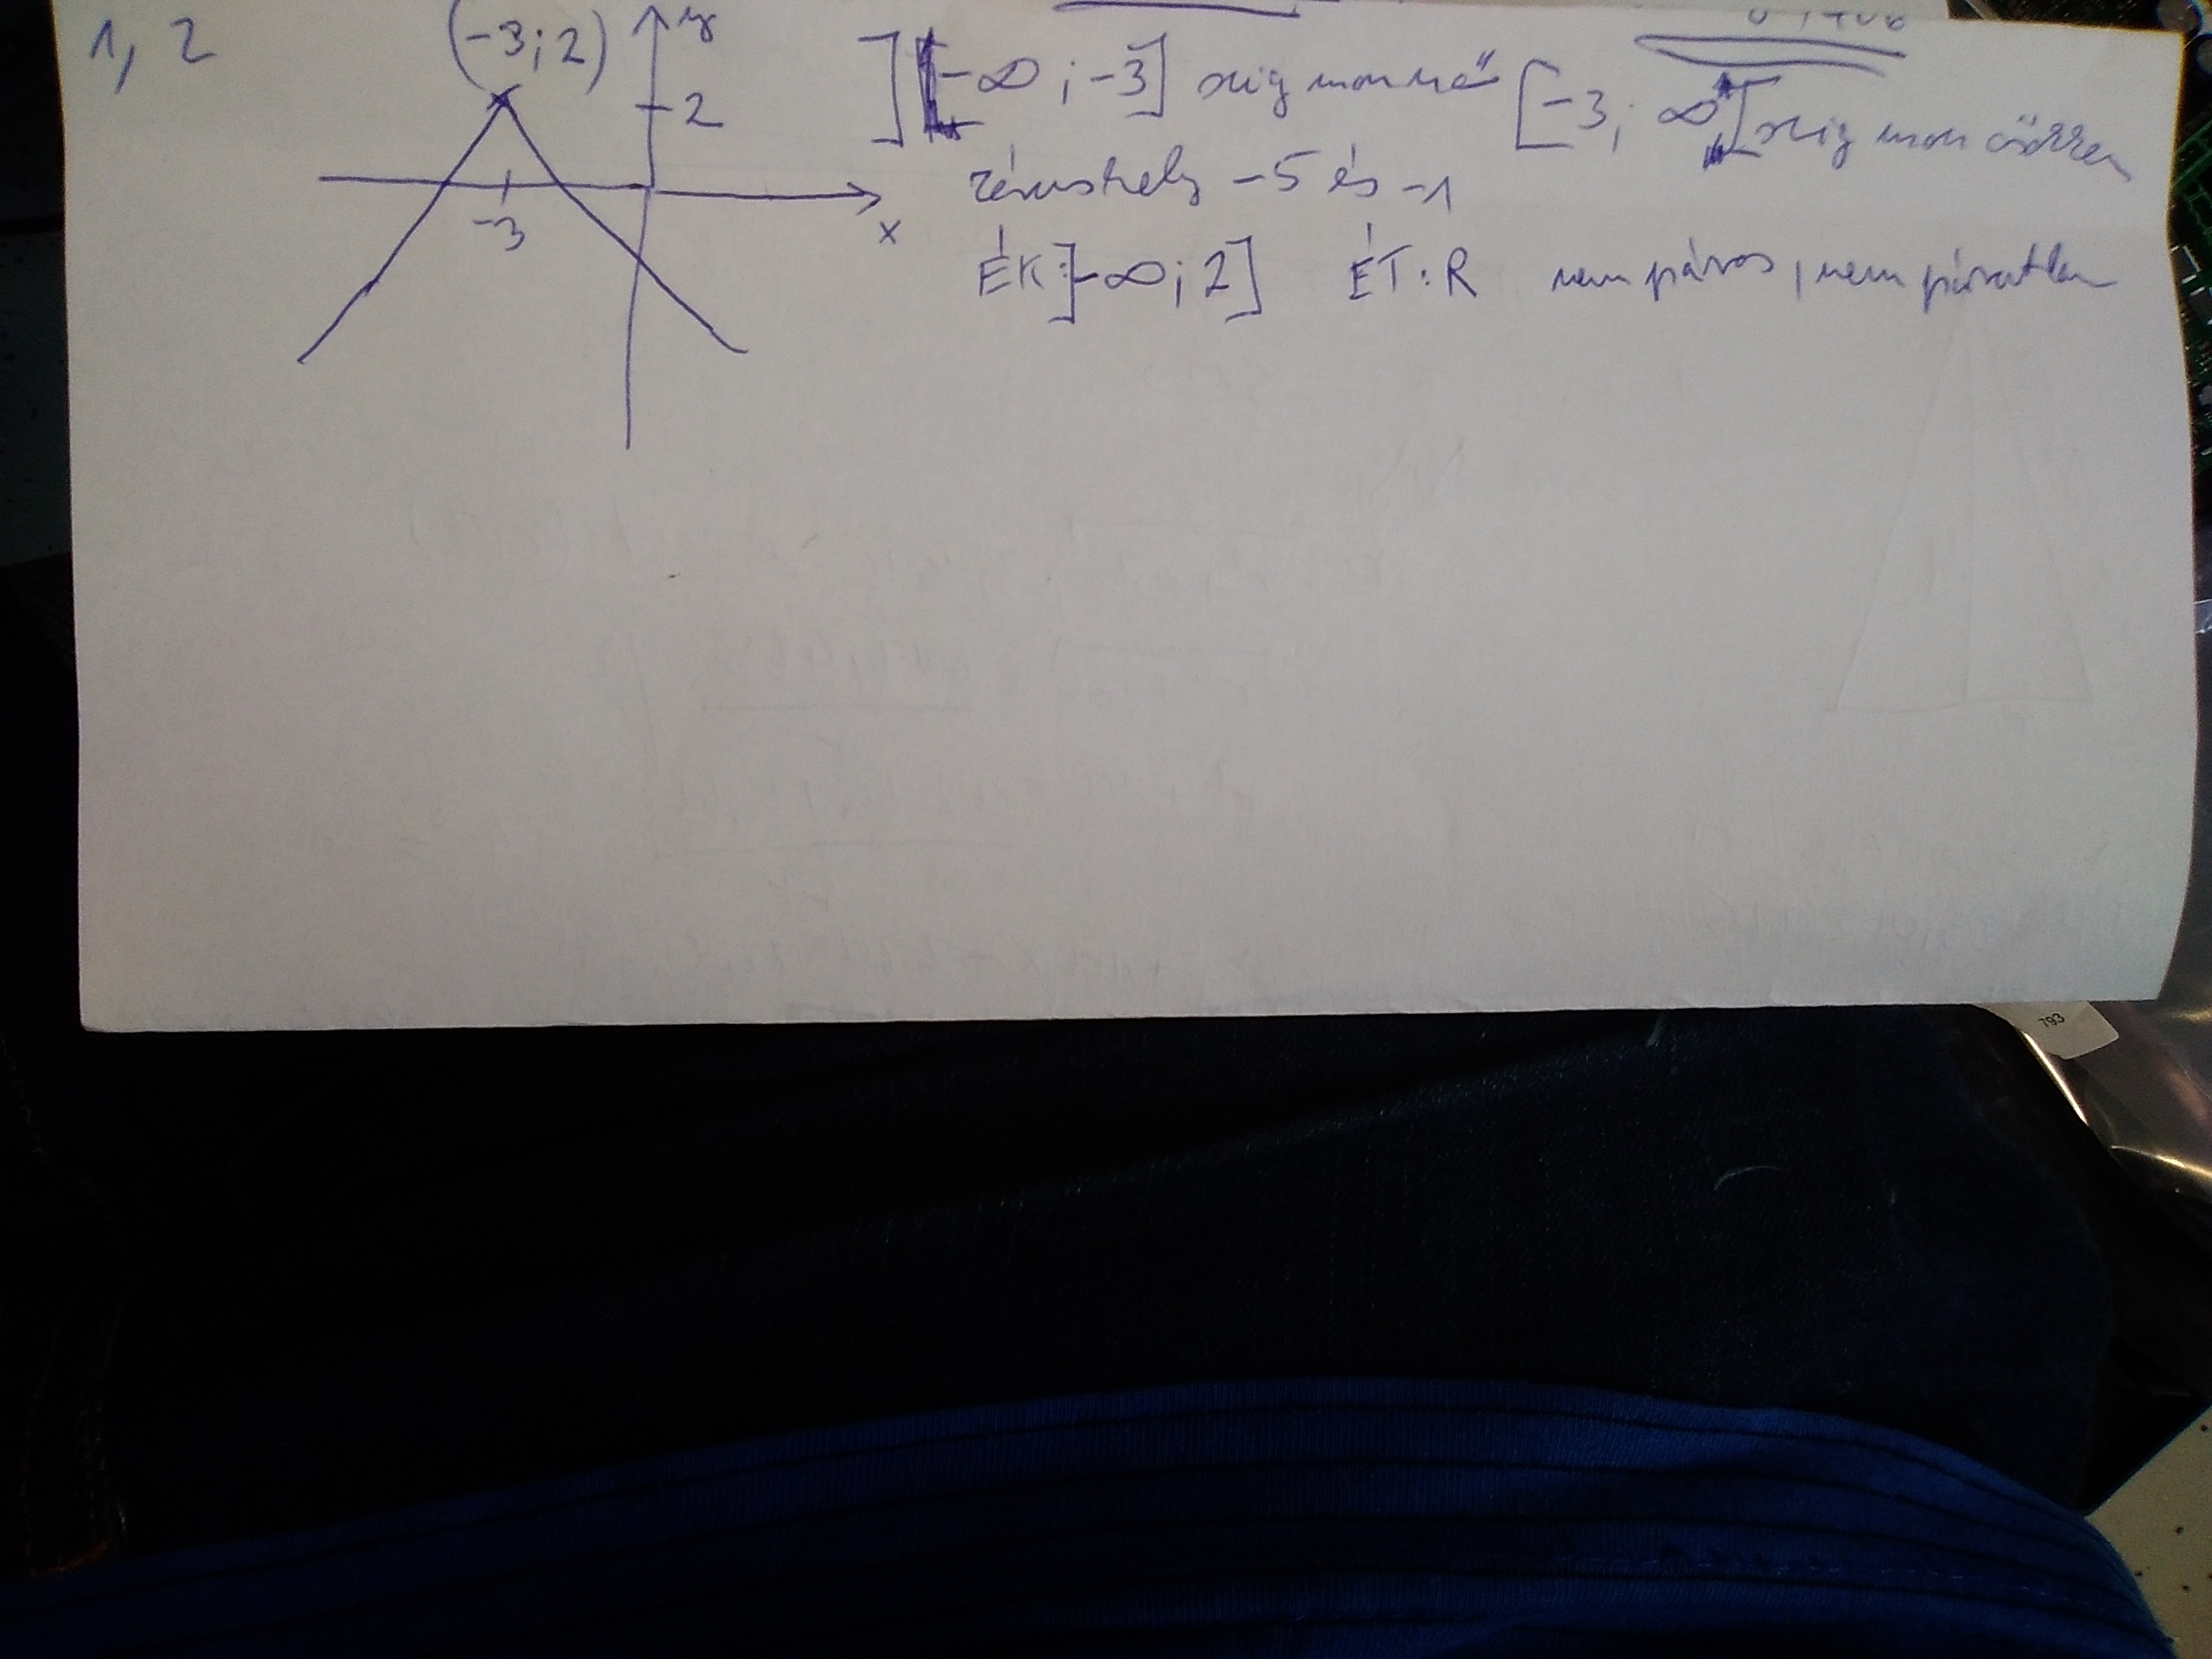 1, 2
(-3; 2)
y
2
-3
x
]-∞ ; -3] szig mon nő [-3; ∞[ szig mon csökken
zérushely -5 és -1
ÉK: ]-∞; 2] ÉT: R nem páros, nem páratlan
793